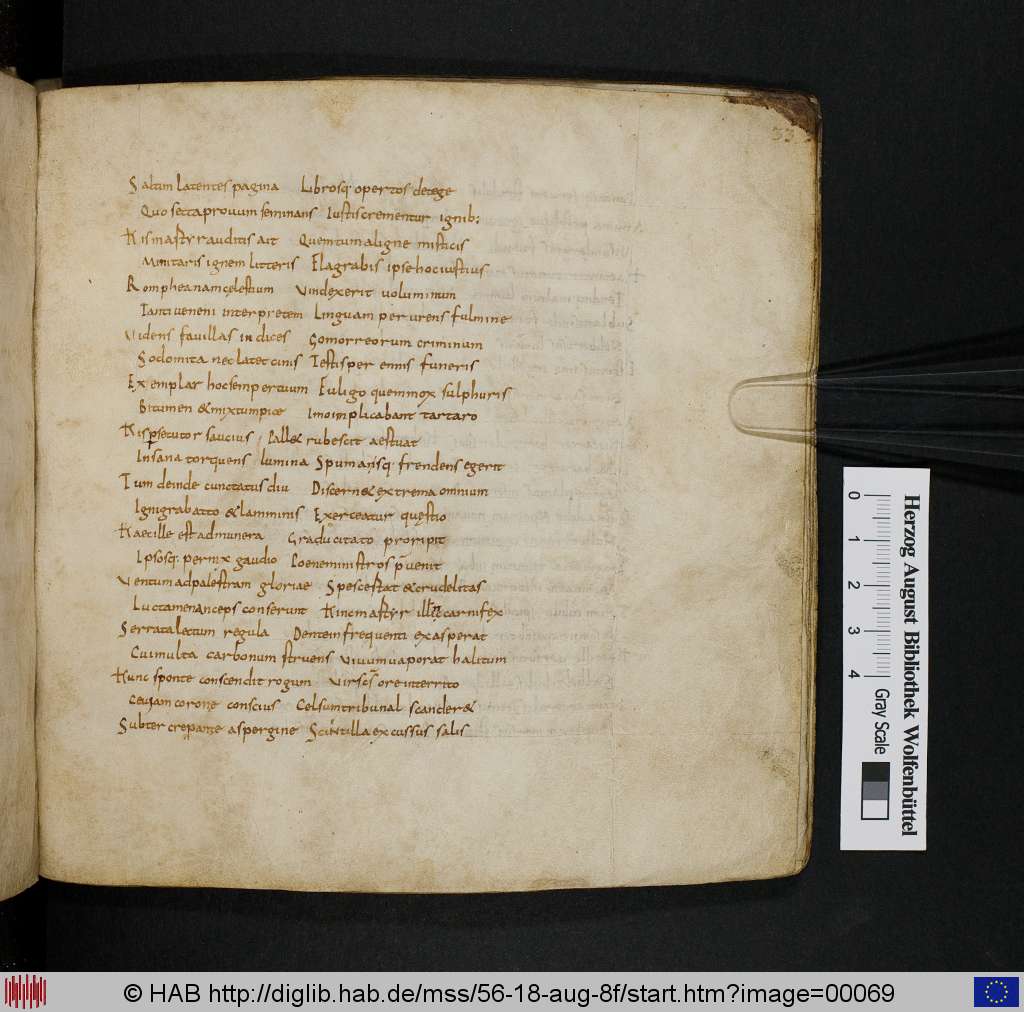 33
Saltim latentes pagina Librosq; opertos detege
Quo secta pravum seminans Iustis cremetur ignib;
His martyr auditis ait Quem tu maligne misticis
Minitaris ignem litteris Flagrabis ipse hoc iustius
Romphea nam cęlestium Vindex erit voluminum
Tanti veneni interpretem Linguam perurens fulmine
Videns favillas indices Gomorreorum criminum
Sodomita nec latet cinis Testis perennis funeris
Exemplar hoc serpens tuum Fuligo quem mox sulphuris
Bitumen & mixtum pice Imo implicabunt tartaro
His persecutor saucius Pall& rubescit aestuat
Insana torquens lumina Spumamsq; frendens egerit
Tum deinde cunctatus diu Discern& extrema omnium
Igni grabatto & lamminis Exerceatur quęstio
Haec ille est ad munera Gradu citato proripit
Ipsosq; pernix gaudio Poene ministros pvenit
Ventum ad palestram gloriae Spes certat & crudelitas
Luctamen anceps conserunt Hinc martyr illinc carnifex
Serrata lectum regula Dente infrequenti exasperat
Cui multa carbonum struens Vivum vaporat halitum
Hunc sponte conscendit rogum Vir scs ore interrito
Ceu iam corone conscius Celsum tribunal scander&
Subter crepante aspergine Scintilla excussus salis
Herzog August Bibliothek Wolfenbüttel
0 1 2 3 4
Gray Scale
© HAB http://diglib.hab.de/mss/56-18-aug-8f/start.htm?image=00069